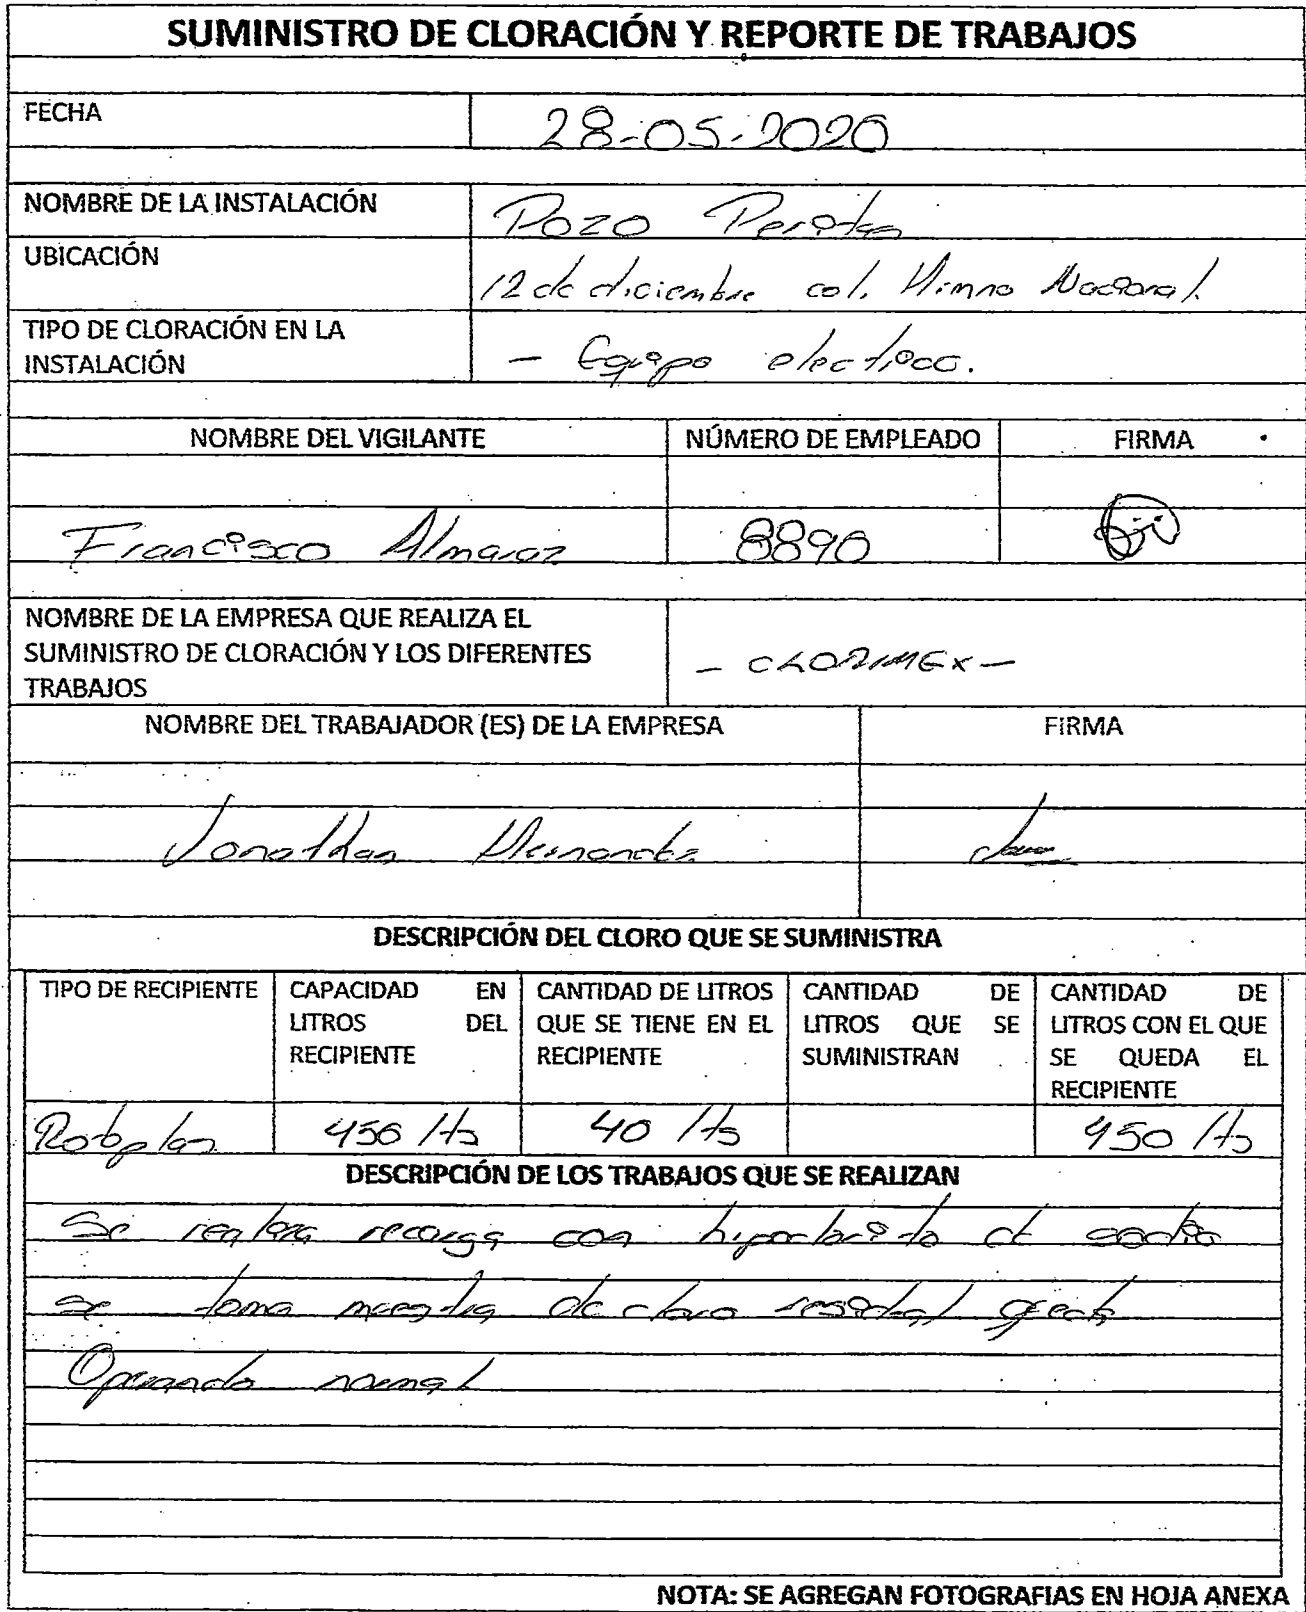 SUMINISTRO DE CLORACIÓN Y REPORTE DE TRABAJOS
FECHA 28-05-2020
NOMBRE DE LA INSTALACIÓN Pozo Peritas
UBICACIÓN 12 de diciembre col. Himno Nacional.
TIPO DE CLORACIÓN EN LA
INSTALACIÓN - Equipo electrico.
NOMBRE DEL VIGILANTE NÚMERO DE EMPLEADO FIRMA
Francisco Almaraz 8890
NOMBRE DE LA EMPRESA QUE REALIZA EL
SUMINISTRO DE CLORACIÓN Y LOS DIFERENTES
TRABAJOS
- CLORIMEX -
NOMBRE DEL TRABAJADOR (ES) DE LA EMPRESA FIRMA
Jonathan Hernandez
DESCRIPCIÓN DEL CLORO QUE SE SUMINISTRA
TIPO DE RECIPIENTE
CAPACIDAD EN
LITROS DEL
RECIPIENTE
CANTIDAD DE LITROS
QUE SE TIENE EN EL
RECIPIENTE
CANTIDAD DE
LITROS QUE SE
SUMINISTRAN
CANTIDAD DE
LITROS CON EL QUE
SE QUEDA EL
RECIPIENTE
Rotoplas 450 lts 40 lts 450 lts
DESCRIPCIÓN DE LOS TRABAJOS QUE SE REALIZAN
Se realiza recarga con hipoclorito de sodio
se toma muestra de cloro residual queda
Operando normal
NOTA: SE AGREGAN FOTOGRAFIAS EN HOJA ANEXA